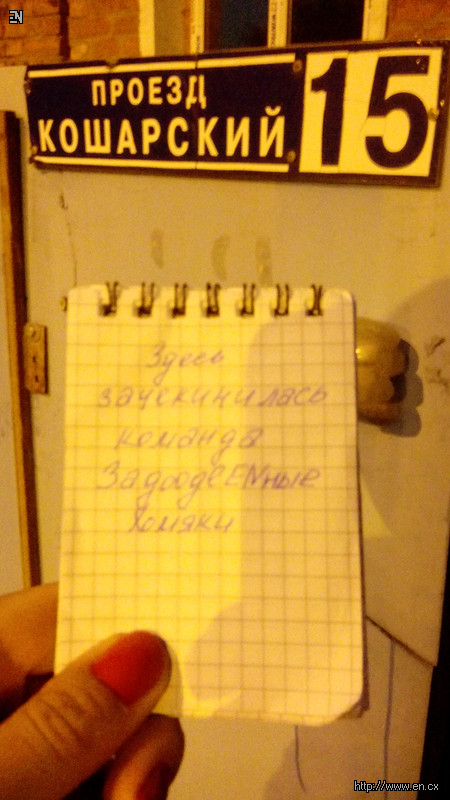 EN
ПРОЕЗД
КОШАРСКИЙ
15
Здесь
зачекинилась
команда
ЗадоодеENные
хомяки
http://www.en.cx